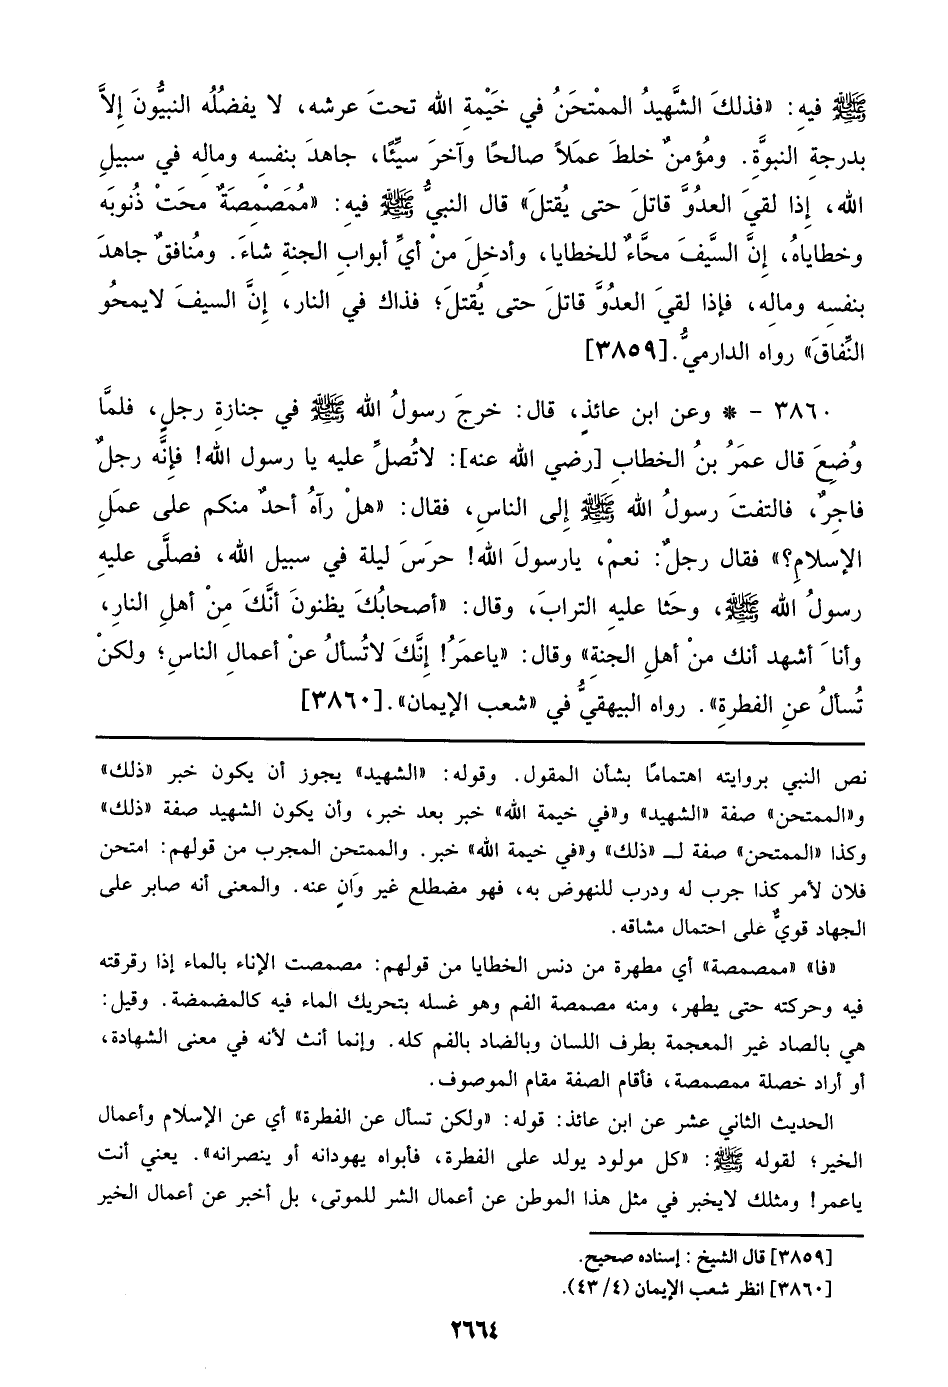 ﷺ فيهِ: «فذلكَ الشَّهيدُ الممْتحَنُ في خَيْمةِ الله تحتَ عرشه، لا يفضُلُه النبيُّونَ إِلاَّ
بدرجةِ النبوَّةِ. ومُؤمنٌ خلطَ عملاً صالحًا وآخرَ سيِّئًا، جاهدَ بنفسِه ومالِه في سبيلِ
الله، إِذا لقيَ العدُوَّ قاتلَ حتى يُقتلَ» قال النبيُّ ﷺ فيه: «مُمَصْمِصَةٌ محَتْ ذُنوبَه
وخطاياهُ، إِنَّ السَّيفَ محَّاءٌ للخطايا، وأدخِلَ منْ أيِّ أبواب الجنةِ شاءَ. ومُنافقٌ جاهدَ
بنفسِه ومالِه، فإذا لقيَ العدُوَّ قاتلَ حتى يُقتلَ؛ فذاك في النار، إِنَّ السيفَ لايمحُو
النِّفاقَ» رواه الدارميُّ. [٣٨٥٩]
٣٨٦٠ - * وعن ابن عائذٍ، قال: خرجَ رسولُ الله ﷺ في جنازةِ رجلٍ، فلمَّا
وُضِعَ قال عمَرُ بنُ الخطابِ [رضي الله عنه]: لاتُصلِّ عليه يا رسول الله! فإنَّه رجلٌ
فاجِرٌ، فالتفتَ رسولُ الله ﷺ إِلى الناسِ، فقال: «هلْ رآهُ أحدٌ منكم على عمَلِ
الإسلامِ؟» فقال رجلٌ: نعمْ، يارسولَ الله! حرَسَ ليلة في سبيل الله، فصلَّى عليهِ
رسولُ الله ﷺ، وحَثا عليهِ الترابَ، وقال: «أصحابُكَ يظنونَ أنَّكَ مِنْ أهلِ النارِ،
وأناَ أشهد أنك منْ أهلِ الجنةِ» وقال: «ياعمَرُ! إِنَّكَ لاتُسألُ عنْ أعمالِ الناسِ؛ ولكنْ
تُسألُ عنِ الفطرةِ». رواه البيهقيُّ في «شعب الإيمان». [٣٨٦٠]
نص النبي بروايته اهتمامًا بشأن المقول. وقوله: «الشهيد» يجوز أن يكون خبر «ذلك»
و«الممتحن» صفة «الشهيد» و«في خيمة الله» خبر بعد خبر، وأن يكون الشهيد صفة «ذلك»
وكذا «الممتحن» صفة لـ «ذلك» و«في خيمة الله» خبر. والممتحن المجرب من قولهم: امتحن
فلان لأمر كذا جرب له ودرب للنهوض به، فهو مضطلع غير وَانٍ عنه. والمعنى أنه صابر على
الجهاد قويٌّ على احتمال مشاقه.
«فا» «ممصمصة» أي مطهرة من دنس الخطايا من قولهم: مصمصت الإناء بالماء إذا رقرقته
فيه وحركته حتى يطهر، ومنه مصمصة الفم وهو غسله بتحريك الماء فيه كالمضمضة. وقيل:
هي بالصاد غير المعجمة بطرف اللسان وبالضاد بالفم كله. وإنما أنث لأنه في معنى الشهادة،
أو أراد خصلة ممصمصة، فأقام الصفة مقام الموصوف.
الحديث الثاني عشر عن ابن عائذ: قوله: «ولكن تسأل عن الفطرة» أي عن الإسلام وأعمال
الخير؛ لقوله ﷺ: «كل مولود يولد على الفطرة، فأبواه يهودانه أو ينصرانه». يعني أنت
ياعمر! ومثلك لايخبر في مثل هذا الموطن عن أعمال الشر للموتى، بل أخبر عن أعمال الخير
[٣٨٥٩] قال الشيخ : إسناده صحيح.
[٣٨٦٠] انظر شعب الإيمان (٤/ ٤٣).
٢٦٦٤